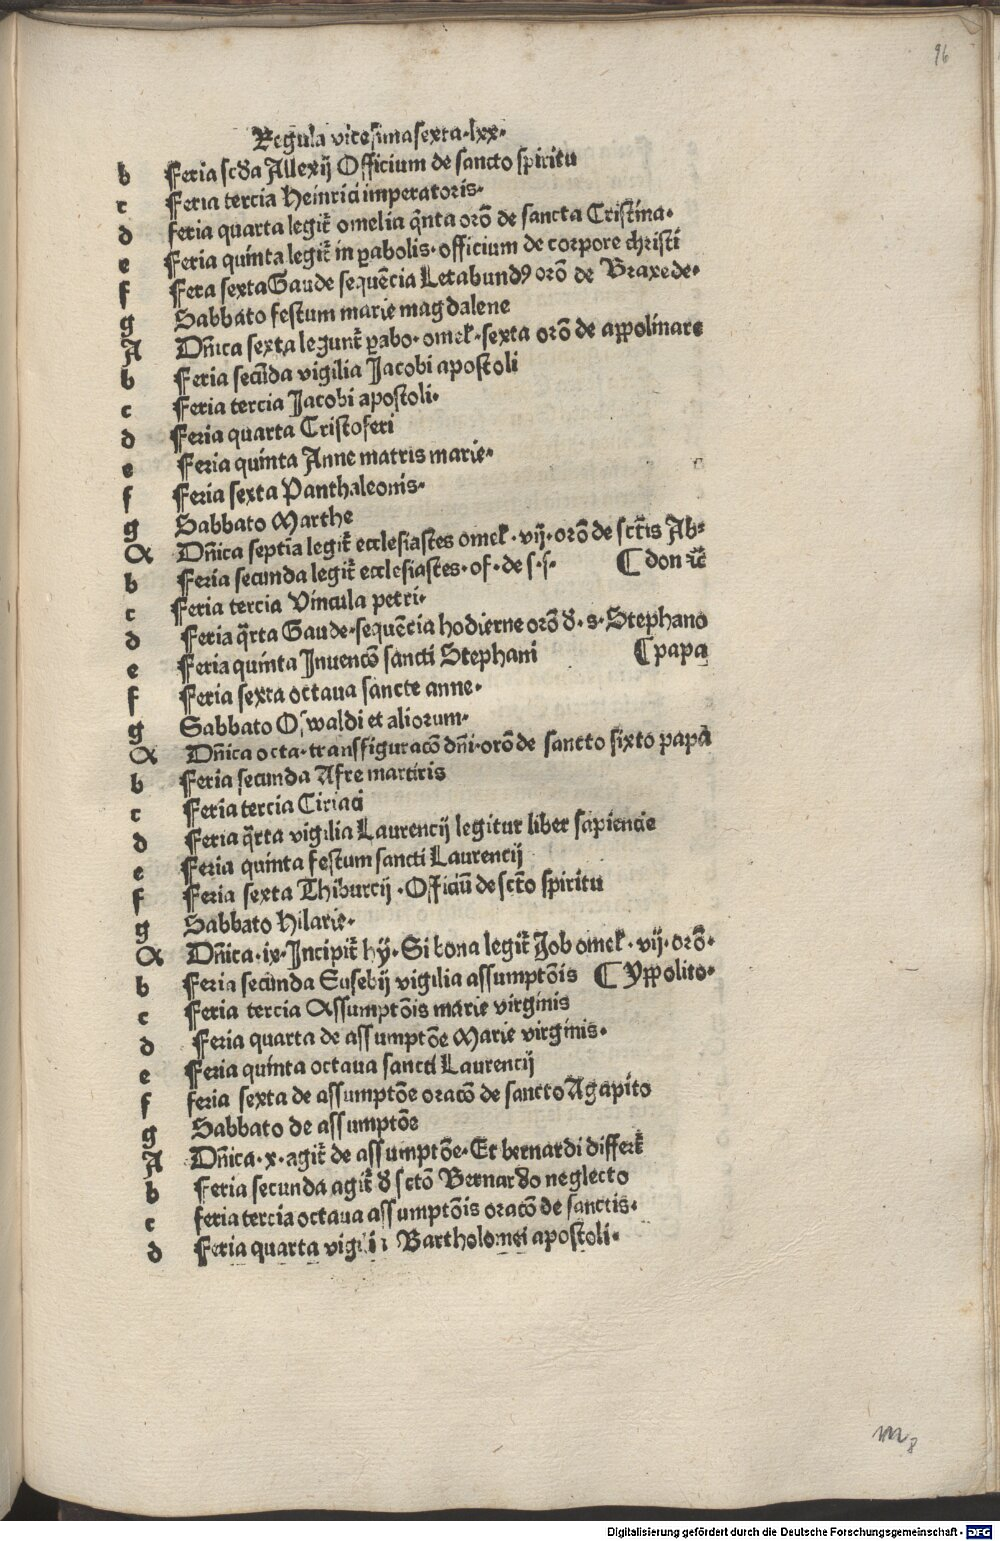 96
Regula vicesimasexta·lxx·
b Feria scďa Allexij Officium de sancto spiritu
c Feria tercia Heinrici imperatoris·
d feria quarta legit̃ omelia q̃nta orõ de sancta Cristina·
e Feria quinta legit̃ in ꝑabolis· officium de corpore christi
f Fera sexta Gaude sequẽcia Letabundꝰ orõ de Braxede·
g Sabbato festum marie magdalene
A Dñica sexta legunt̃ ꝑabo· omeł·sexta orõ de appolinare
b Feria secũda vigilia Jacobi apostoli
c Feria tercia Jacobi apostoli·
d Feria quarta Cristoferi
e Feria quinta Anne matris marie·
f Feria sexta Panthaleonis·
g Sabbato Marthe
A Dñica septĩa legit̃ ecclesiastes omeł· vij· orõ de sctĩs Ab⸗
b Feria secunda legit̃ ecclesiastes· of· de s·s· ¶ don
c Feria tercia Vincula petri·
d Feria q̃rta Gaude·sequẽcia hodierne orõ ď· s· Stephano
e Feria quinta Invencõ sancti Stephani ¶ papa
f Feria sexta octaua sancte anne·
g Sabbato Oswaldi et aliorum·
A Dñica octa· transfiguracõ dñi·orõ de sancto sixto papa
b Feria secunda Afre martiris
c Feria tercia Ciriaci
d Feria q̃rta vigilia Laurencij legitur liber sapiencie
e Feria quinta festum sancti Laurencij
f Feria sexta Thiburcij · Officiũ de sctõ spiritu
g Sabbato Hilarie·
A Dñica · ix· Incipit̃ hy̆· Si bona legit̃ Job omeł · vij· orõ·
b Feria secunda Eusebij vigilia assumptõis ¶ Yppolito·
c Feria tercia Assumptõis marie virginis
d Feria quarta de assumptõe Marie virginis·
e Feria quinta octaua sancti Laurencij
f feria sexta de assumptõe oracõ de sancto Agapito
g Sabbato de assumptõe
A Dñica · x · agit̃ de assumptõe· Et bernardi differt̃
b Feria secunda agit̃ ď sctõ Bernardo neglecto
c feria tercia octaua assumptõis oracõ de sanctis·
d Feria quarta vigilia Bartholomei apostoli·
m 8
Digitalisierung gefördert durch die Deutsche Forschungsgemeinschaft - DFG